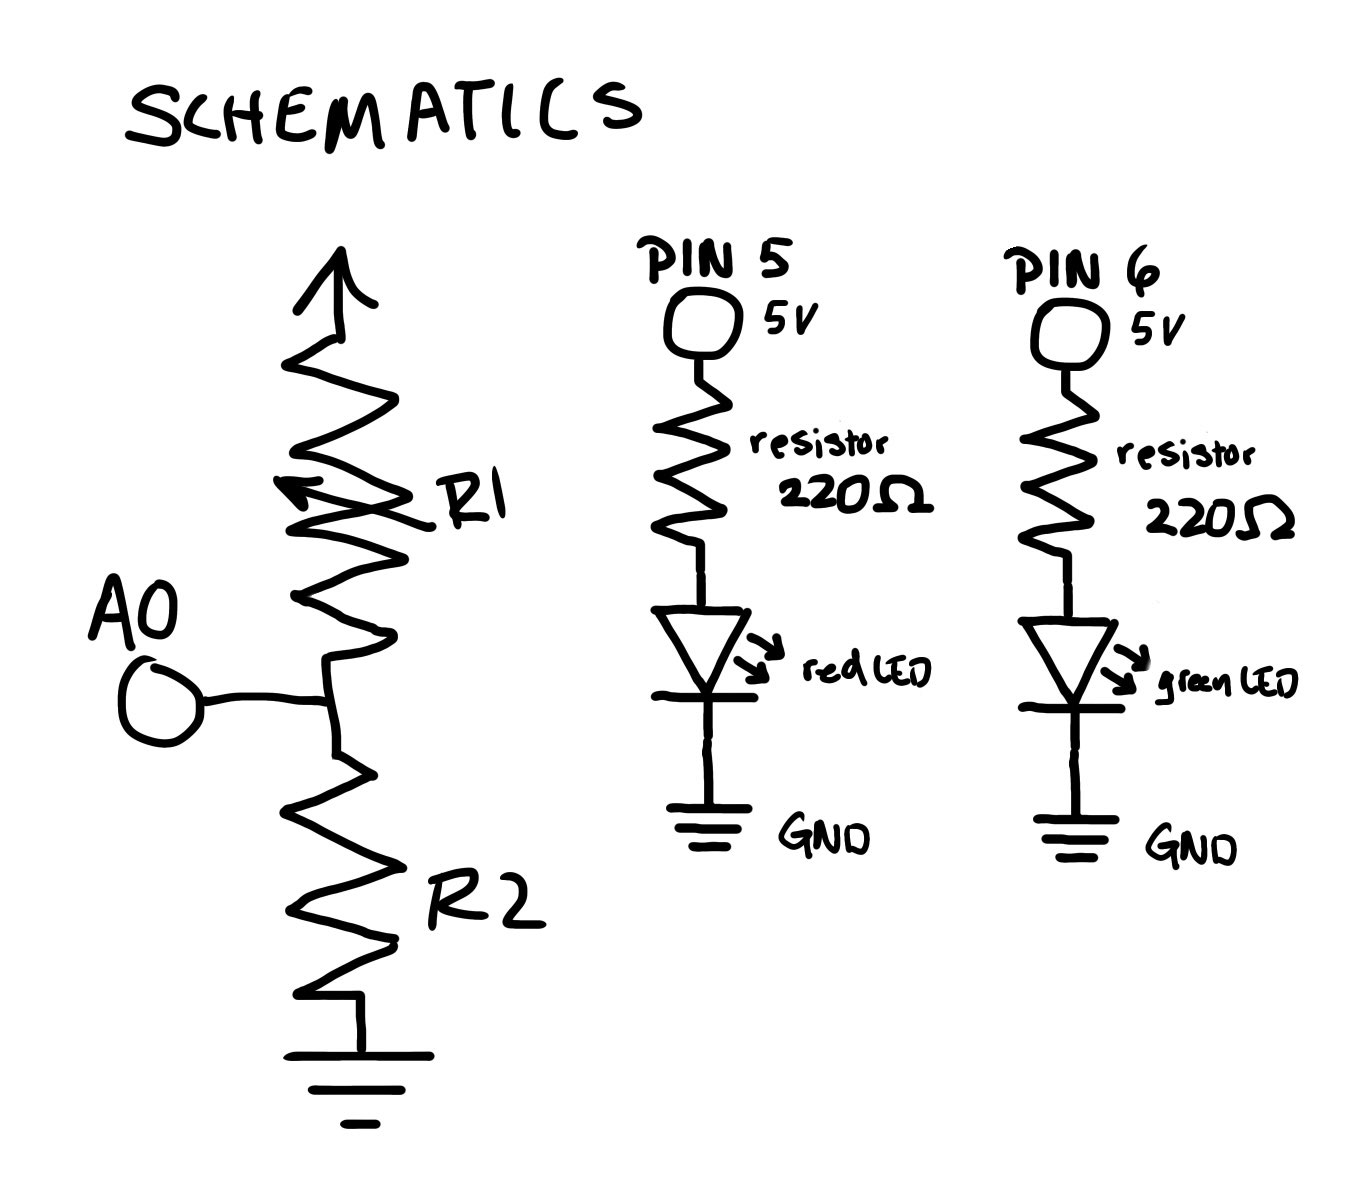 SCHEMATICS
R1
A0
R2
PIN 5
5V
resistor
220Ω
red LED
GND
PIN 6
5V
resistor
220Ω
green LED
GND